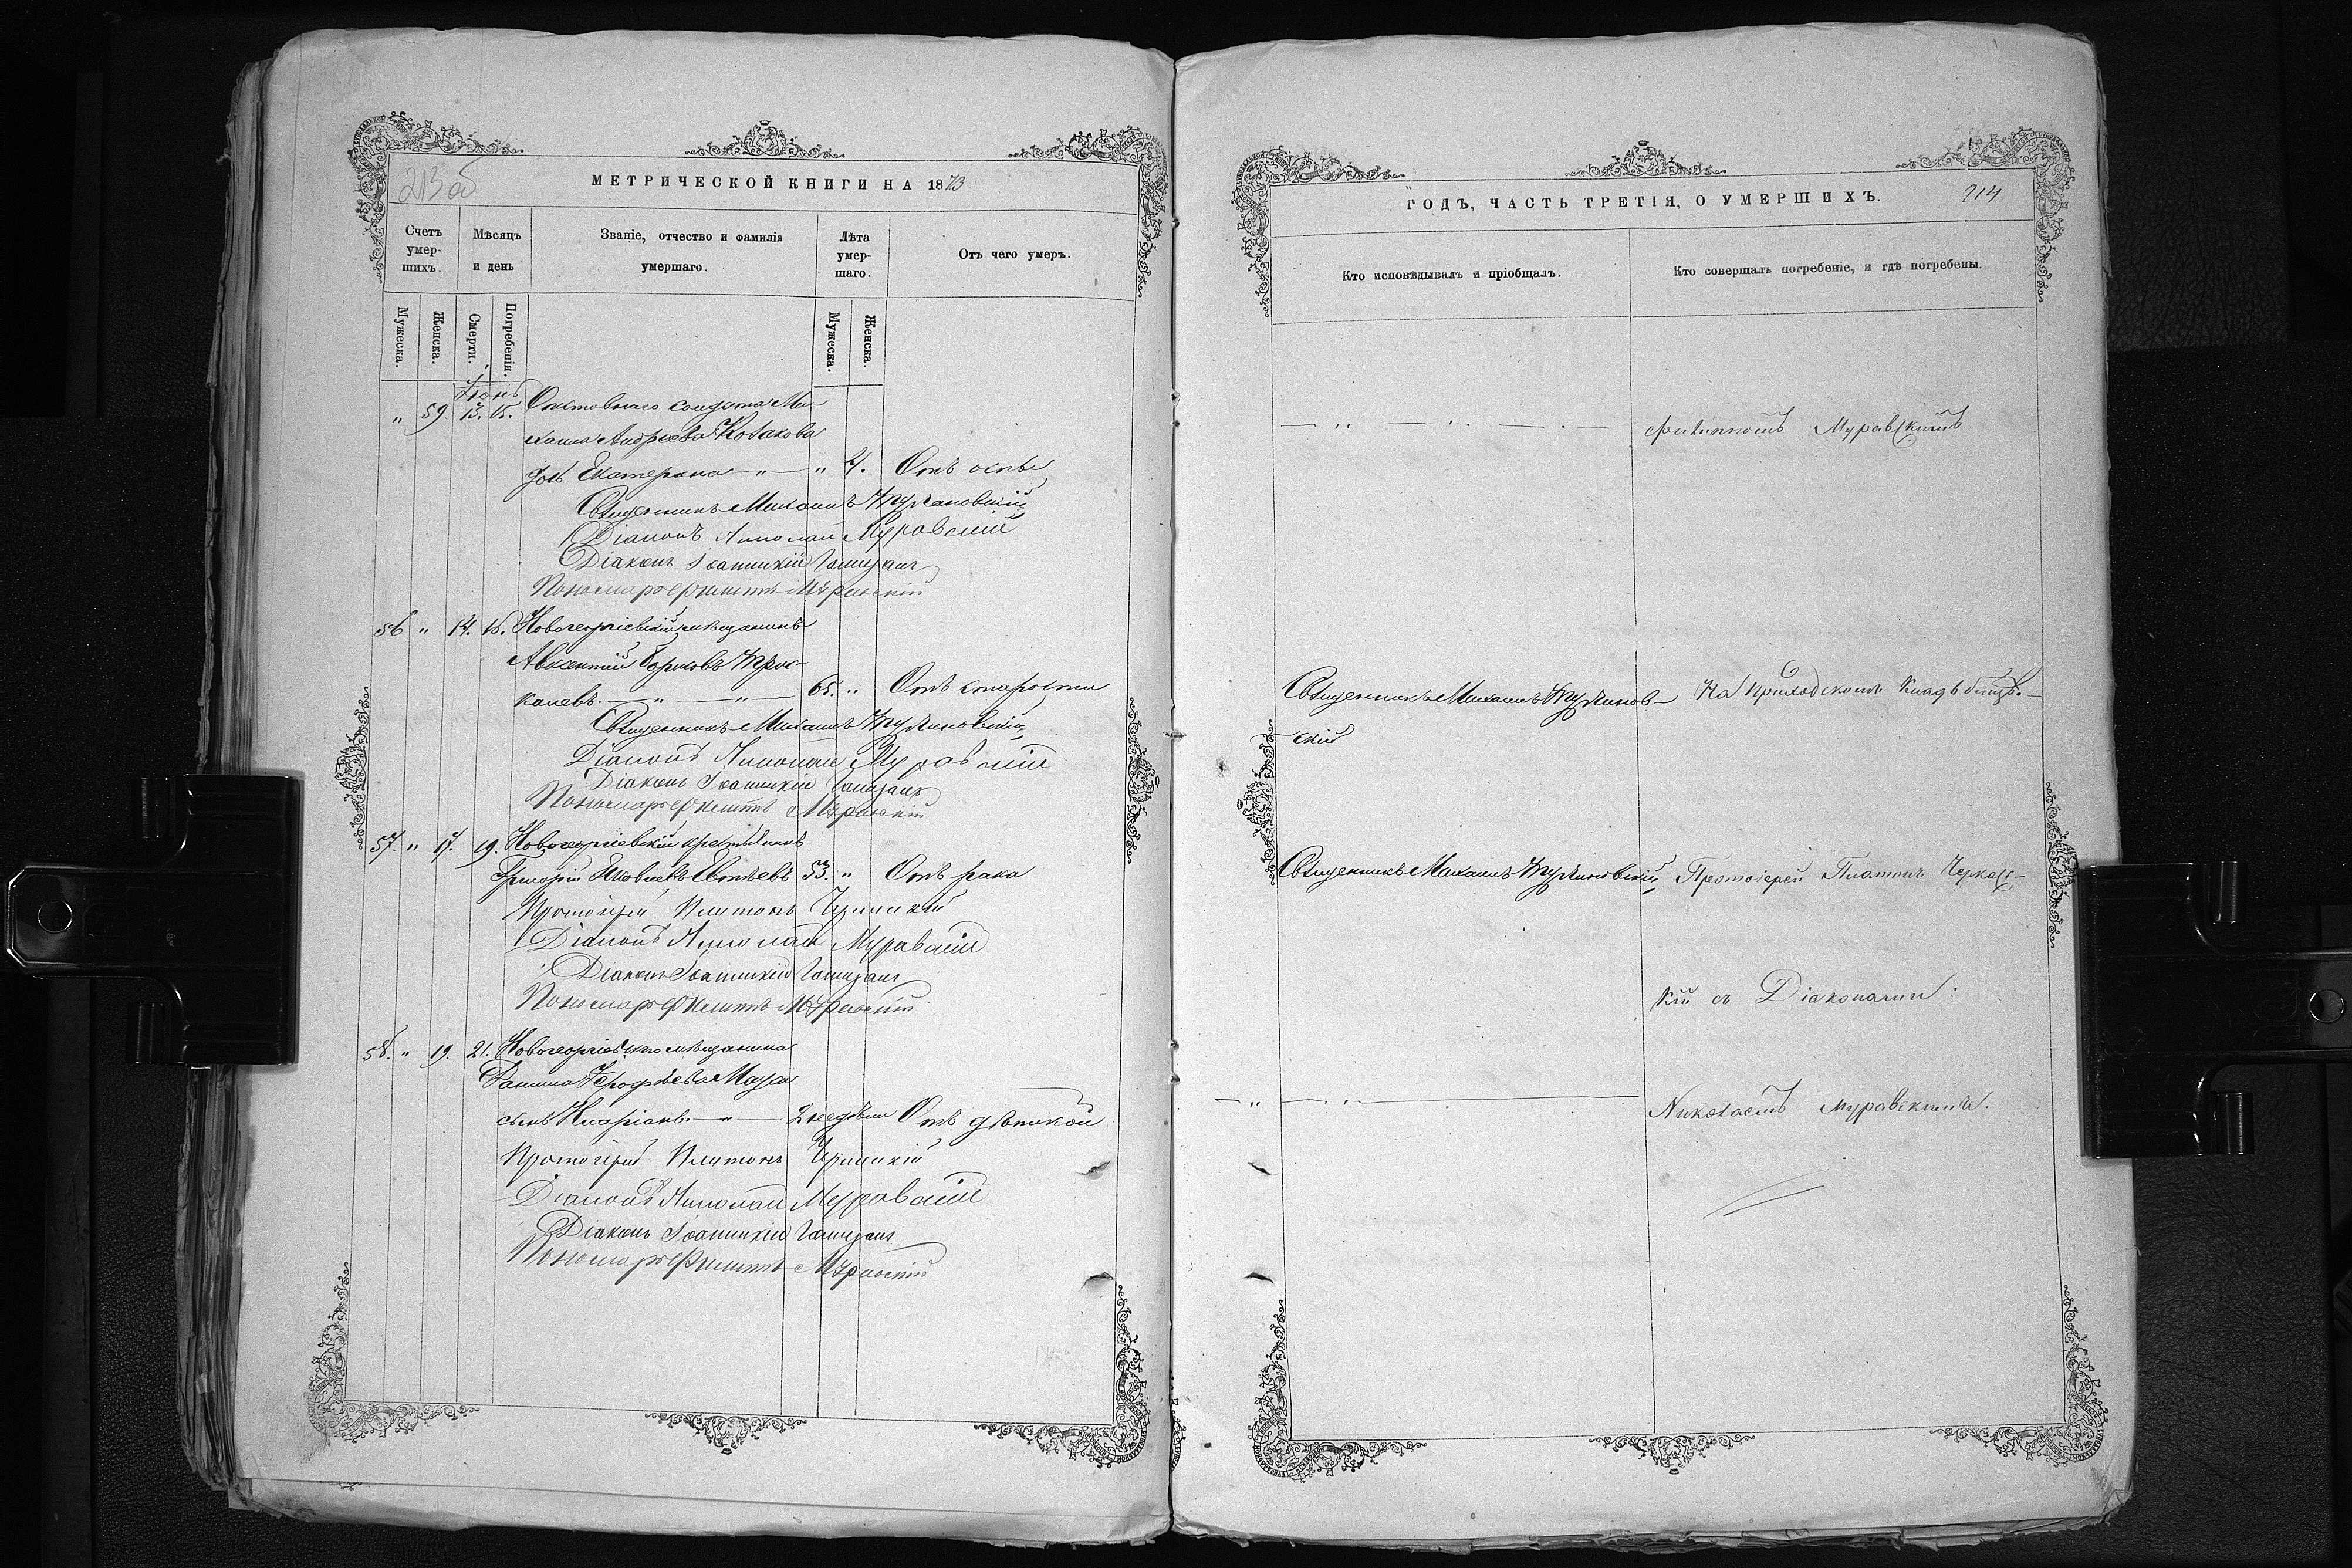 213 об
МЕТРИЧЕСКОЙ КНИГИ НА 1873
Счетъ умер-шихъ.
Мѣсяцъ и день
Званіе, отчество и фамилія умершаго.
Лѣта умер-шаго.
Отъ чего умеръ.
Мужеска.
Женска.
Смерти.
Погребенія.
Мужеска.
Женска.
Іюнь
" 59. 13. 15. Отставнаго солдата Ми-
хаила Андреева Козакова
дочь Екатерина — " — " 4. Отъ оспы
Священникъ Михаилъ
Діаконъ Николай Муравскій
Діаконъ Іоанникій
Пономарь Филиппъ Муравскій
56 " 14. 15. Новогеоргіевскій мѣщанинъ
Авксентій
калевъ. — " — " — 65. " Отъ старости
Священникъ Михаилъ
Діаконъ Николай Муравскій
Діаконъ Іоанникій
Пономарь Филиппъ Муравскій
57. " 17. 19. Новогеоргіевскій
Григорій Яковлевъ Евтѣевъ 53. " Отъ рака
Протоіерей Платонъ Черкасскій
Діаконъ Николай Муравскій
Діаконъ Іоанникій
Пономарь Филиппъ Муравскій
58. " 19. 21. Новогеоргіевскаго мѣщанина
Даниила Ерофѣева
сынъ Иларіонъ. — " — 2 недѣли Отъ дѣтской
Протоіерей Платонъ Черкасскій
Діаконъ Николай Муравскій
Діаконъ Іоанникій
Пономарь Филиппъ Муравскій
ГОДЪ, ЧАСТЬ ТРЕТІЯ, О УМЕРШИХЪ.
214
Кто исповѣдывалъ и пріобщалъ.
Кто совершалъ погребеніе, и гдѣ погребены.
Филиппомъ Муравскимъ
Священникъ Михаилъ
скій
На приходскомъ кладбищѣ.
Священникъ Михаилъ
Протоіерей Платонъ Черкас-
кій съ Діаконами:
Николаемъ Муравскимъ.